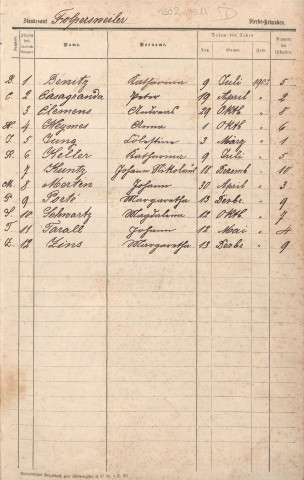 Standesamt Folpersweiler Sterbe-Urkunden.
Name. Vorname. Datum des Todes
Tag. Monat Jahr
B. 1 Benitz Katharina 9 Juli 1902 5
C. 2 Casagranda Peter 19 April " 2
" 3 Clemens Andreas 29 Oktb " 8
H. 4 Heymes Anna 1 Oktb " 6
J. 5 Jung Cölestine 3 März " 1
K. 6 Keller Katharina 9 Juli " 5
" 7 Kuntz Johann Nikolaus 18 Dezemb " 10
M. 8 Marten Johann 30 April " 3
P. 9 Porté Margaretha 13 Dezbr " 9
S. 10 Schwartz Magdalena 12 Oktb " 7
T. 11 Tarall Johann 12 Mai " 4
Z. 12 Zins Margaretha 13 Dezbr " 9